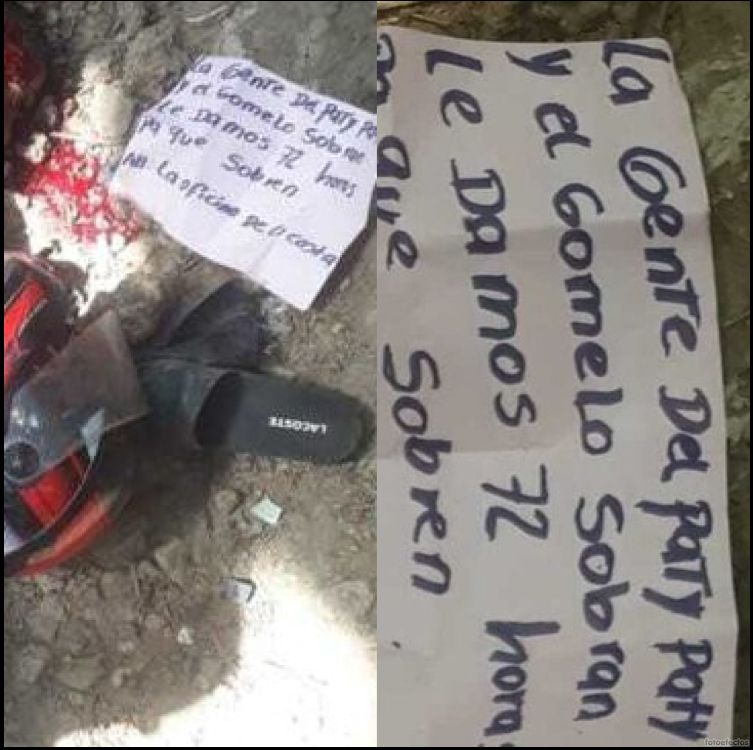 La Gente Del Paty Pa
y el Gomelo Sobran
Le Damos 72 horas
pa que Sobren
Att La oficina De la Costa
LACOSTE
La Gente Del Paty Paty
y el Gomelo Sobran
Le Damos 72 horas
pa que Sobren
fotoefectos